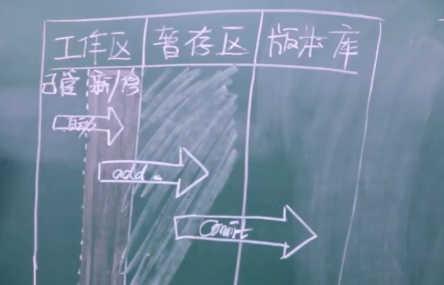 工作区 暂存区 版本库
已管 新/修
add
Commit